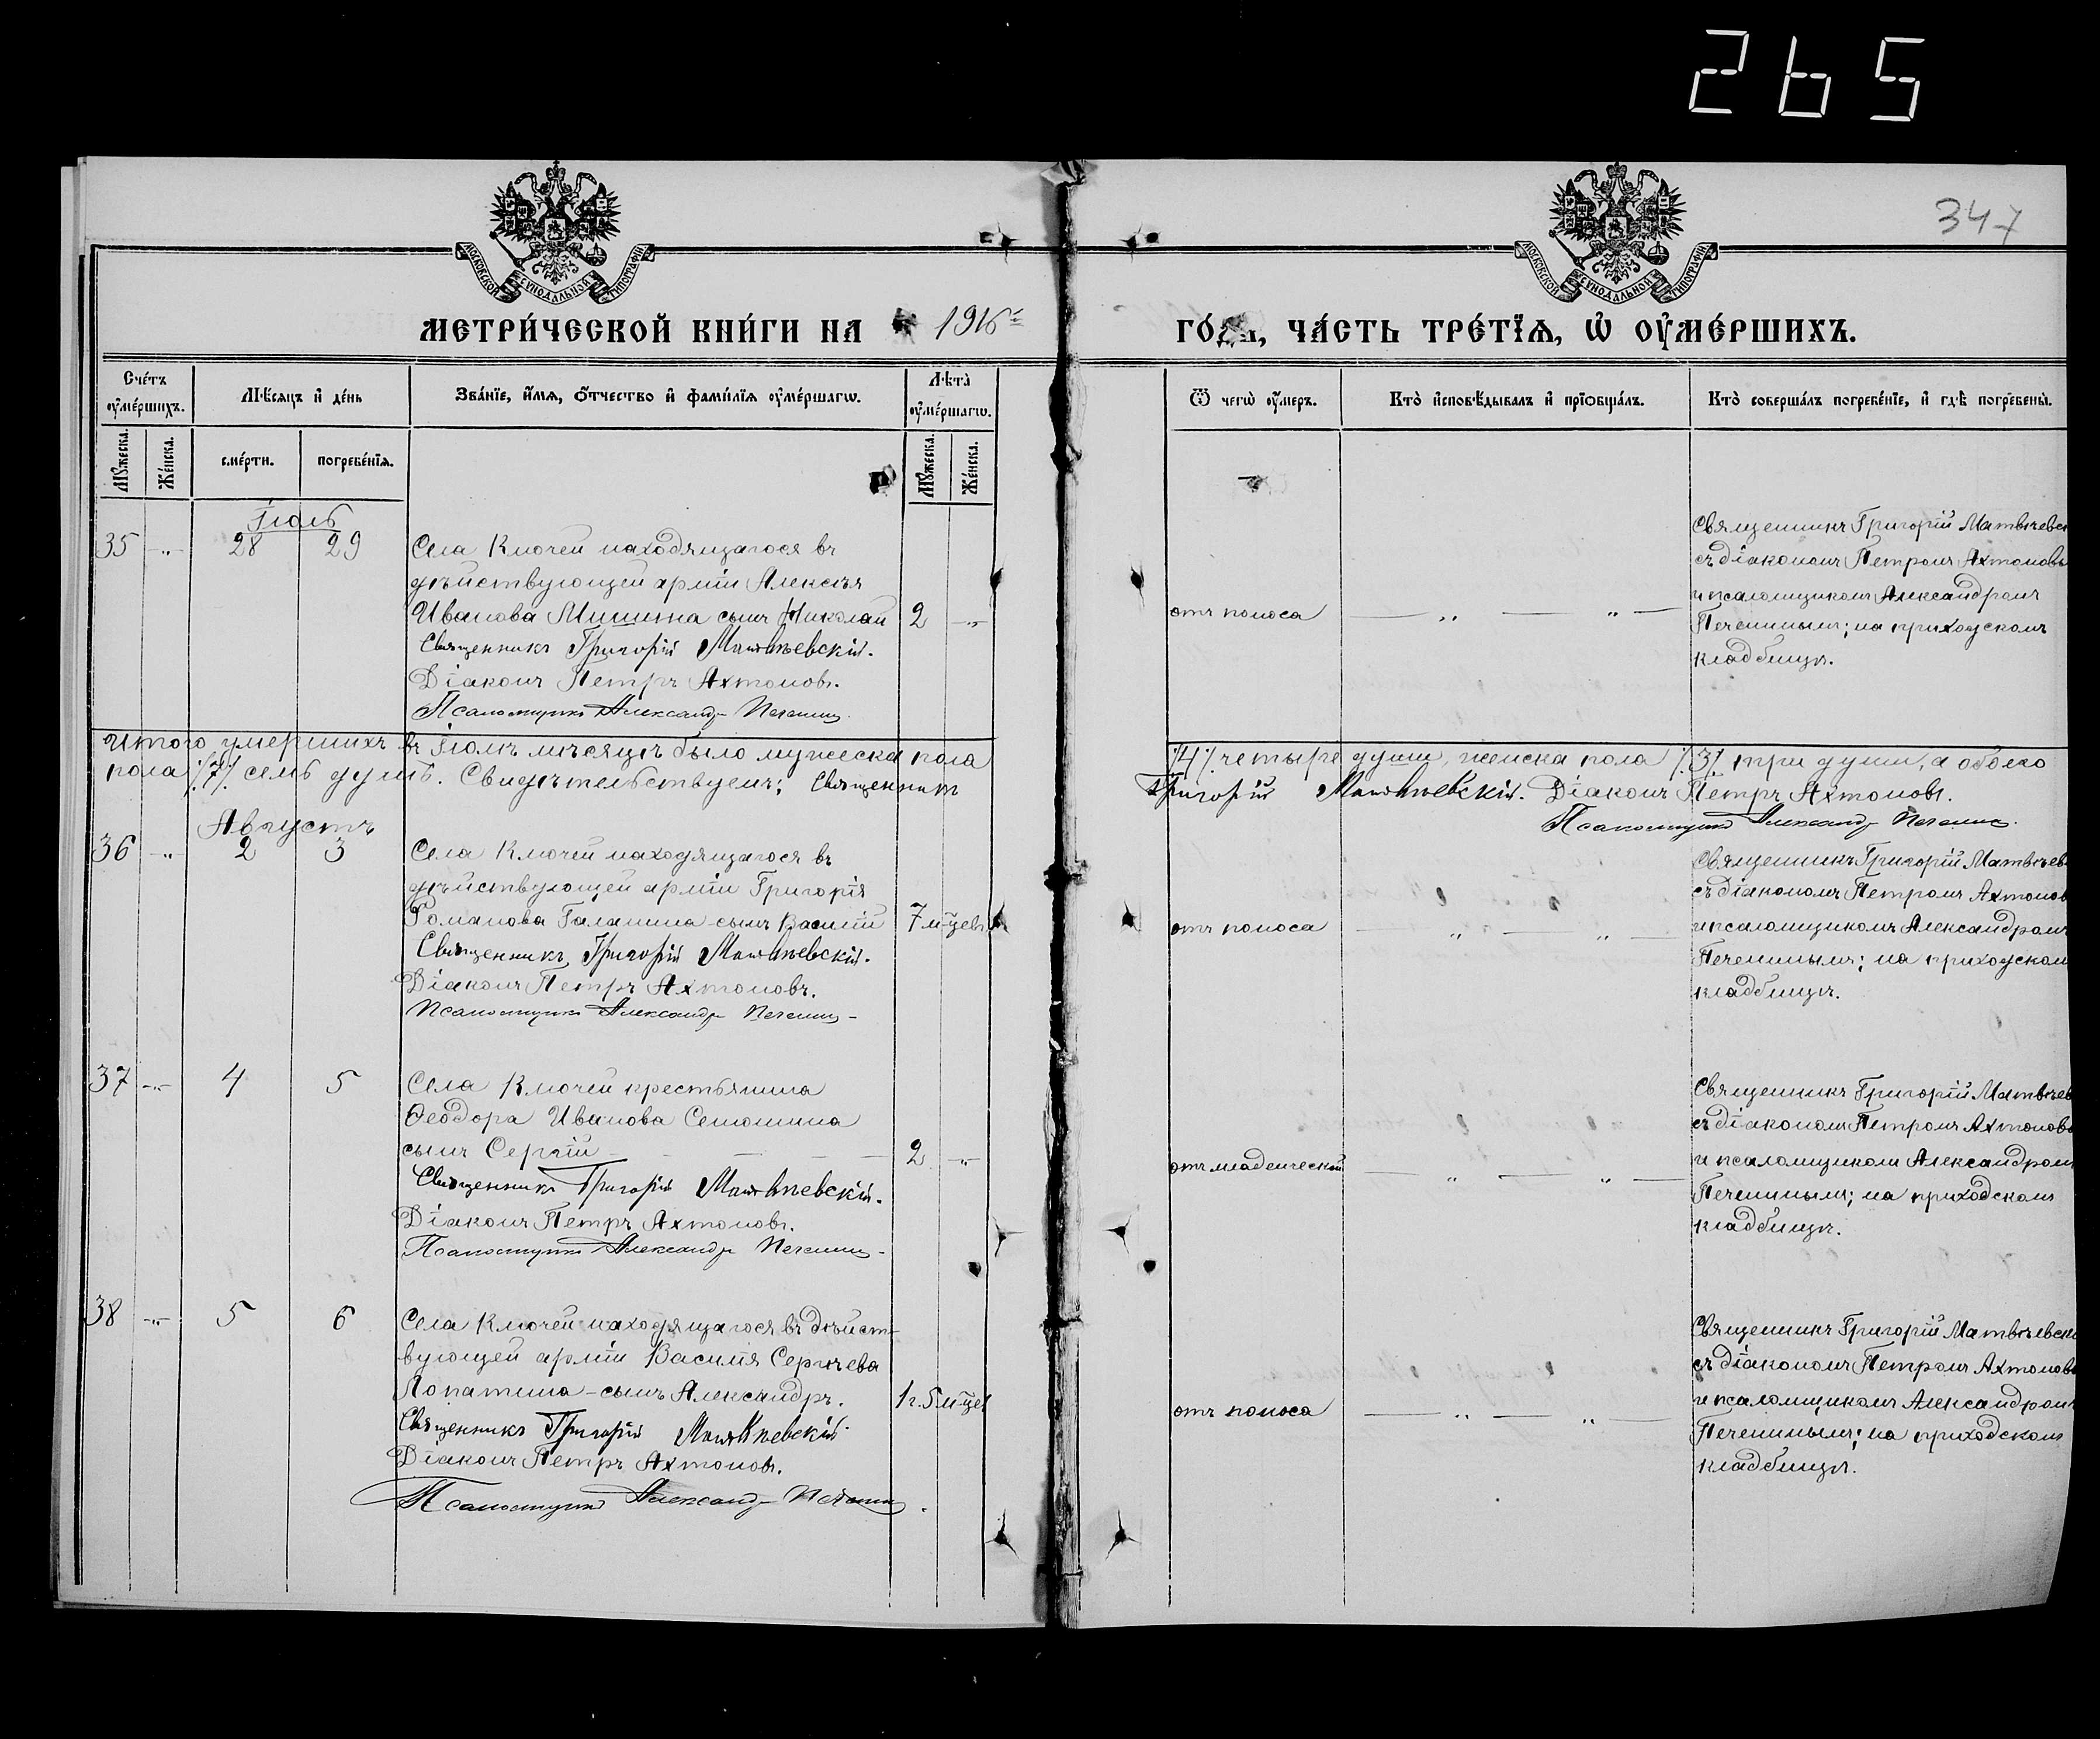 265
347
МОСКОВСКОЙ СѴНОДАЛЬНОЙ ТИПОГРАФІИ
МОСКОВСКОЙ СѴНОДАЛЬНОЙ ТИПОГРАФІИ
МЕТРИ́ЧЕСКОЙ КНИ́ГИ НА 1916 ГО́ДЪ, ЧА́СТЬ ТРЕ́ТІѦ, Ѡ ОУМЕ́РШИХЪ.
Сче́тъ оуме́ршихъ.
Мѣ́сяцъ и де́нь
Зва́нїе, и́мѧ, ѻ́тчество и фами́лїѧ оуме́ршагѡ.
Лѣта̀ оуме́ршагѡ.
Ѿ чегѡ̀ оу́меръ.
Кто̀ исповѣ́дывалъ и прїѻбща́лъ.
Кто̀ соверша́лъ погребе́нїе, и гдѣ̀ погребены̀.
Мꙋ́жеска.
Же́нска.
сме́рти.
погребе́нїѧ.
Мꙋ́жеска.
Же́нска.
Іюль
35 -„- 28 29 Села Ключей находящагося въ
дѣйствующей арміи Алексѣя
Иванова Мишина сынъ Николай 2 -„-
Священникъ Григорій Матвѣевскій.
Діаконъ Петръ Ахтоновъ.
Псаломщикъ Александръ Печенинъ.
отъ поноса — „ — „ —
Священникъ Григорій Матвѣевск
съ діакономъ Петромъ Ахтоновы
и псаломщикомъ Александромъ
Печенинымъ; на приходскомъ
кладбищѣ.
Итого умершихъ въ Іюлѣ мѣсяцѣ было мужеска пола /4/ четыре души, женска пола /3/ три души, а обоего
пола /7/ семь душъ. Свидѣтельствуемъ: Священникъ Григорій Матвѣевскій. Діаконъ Петръ Ахтоновъ.
Псаломщикъ Александръ Печенинъ.
Августъ
36 -„- 2 3 Села Ключей находящагося въ
дѣйствующей арміи Григорія
Романова Галанина сынъ Василій 7 м-цевъ
Священникъ Григорій Матвѣевскій.
Діаконъ Петръ Ахтоновъ.
Псаломщикъ Александръ Печенинъ
отъ поноса — „ — „ —
Священникъ Григорій Матвѣев
съ діакономъ Петромъ Ахтонов
и псаломщикомъ Александромъ
Печенинымъ; на приходском
кладбищѣ.
37 -„- 4 5 Села Ключей крестьянина
Ѳеодора Иванова Сенюшина
сынъ Сергій — — — 2 -„-
Священникъ Григорій Матвѣевскій.
Діаконъ Петръ Ахтоновъ.
Псаломщикъ Александръ Печенинъ
отъ младенческой — „ — „ —
Священникъ Григорій Матвѣев
съ діакономъ Петромъ Ахтоновы
и псаломщикомъ Александромъ
Печенинымъ; на приходскомъ
кладбищѣ.
38 -„- 5 6 Села Ключей находящагося въ дѣйст-
вующей арміи Василія Сергѣева
Лопатина - сынъ Александръ. 1 г. 5 м-цев
Священникъ Григорій Матвѣевскій.
Діаконъ Петръ Ахтоновъ.
Псаломщикъ Александръ Печенинъ.
отъ поноса — „ — „ —
Священникъ Григорій Матвѣевск
съ діакономъ Петромъ Ахтоновы
и псаломщикомъ Александромъ
Печенинымъ; на приходскомъ
кладбищѣ.